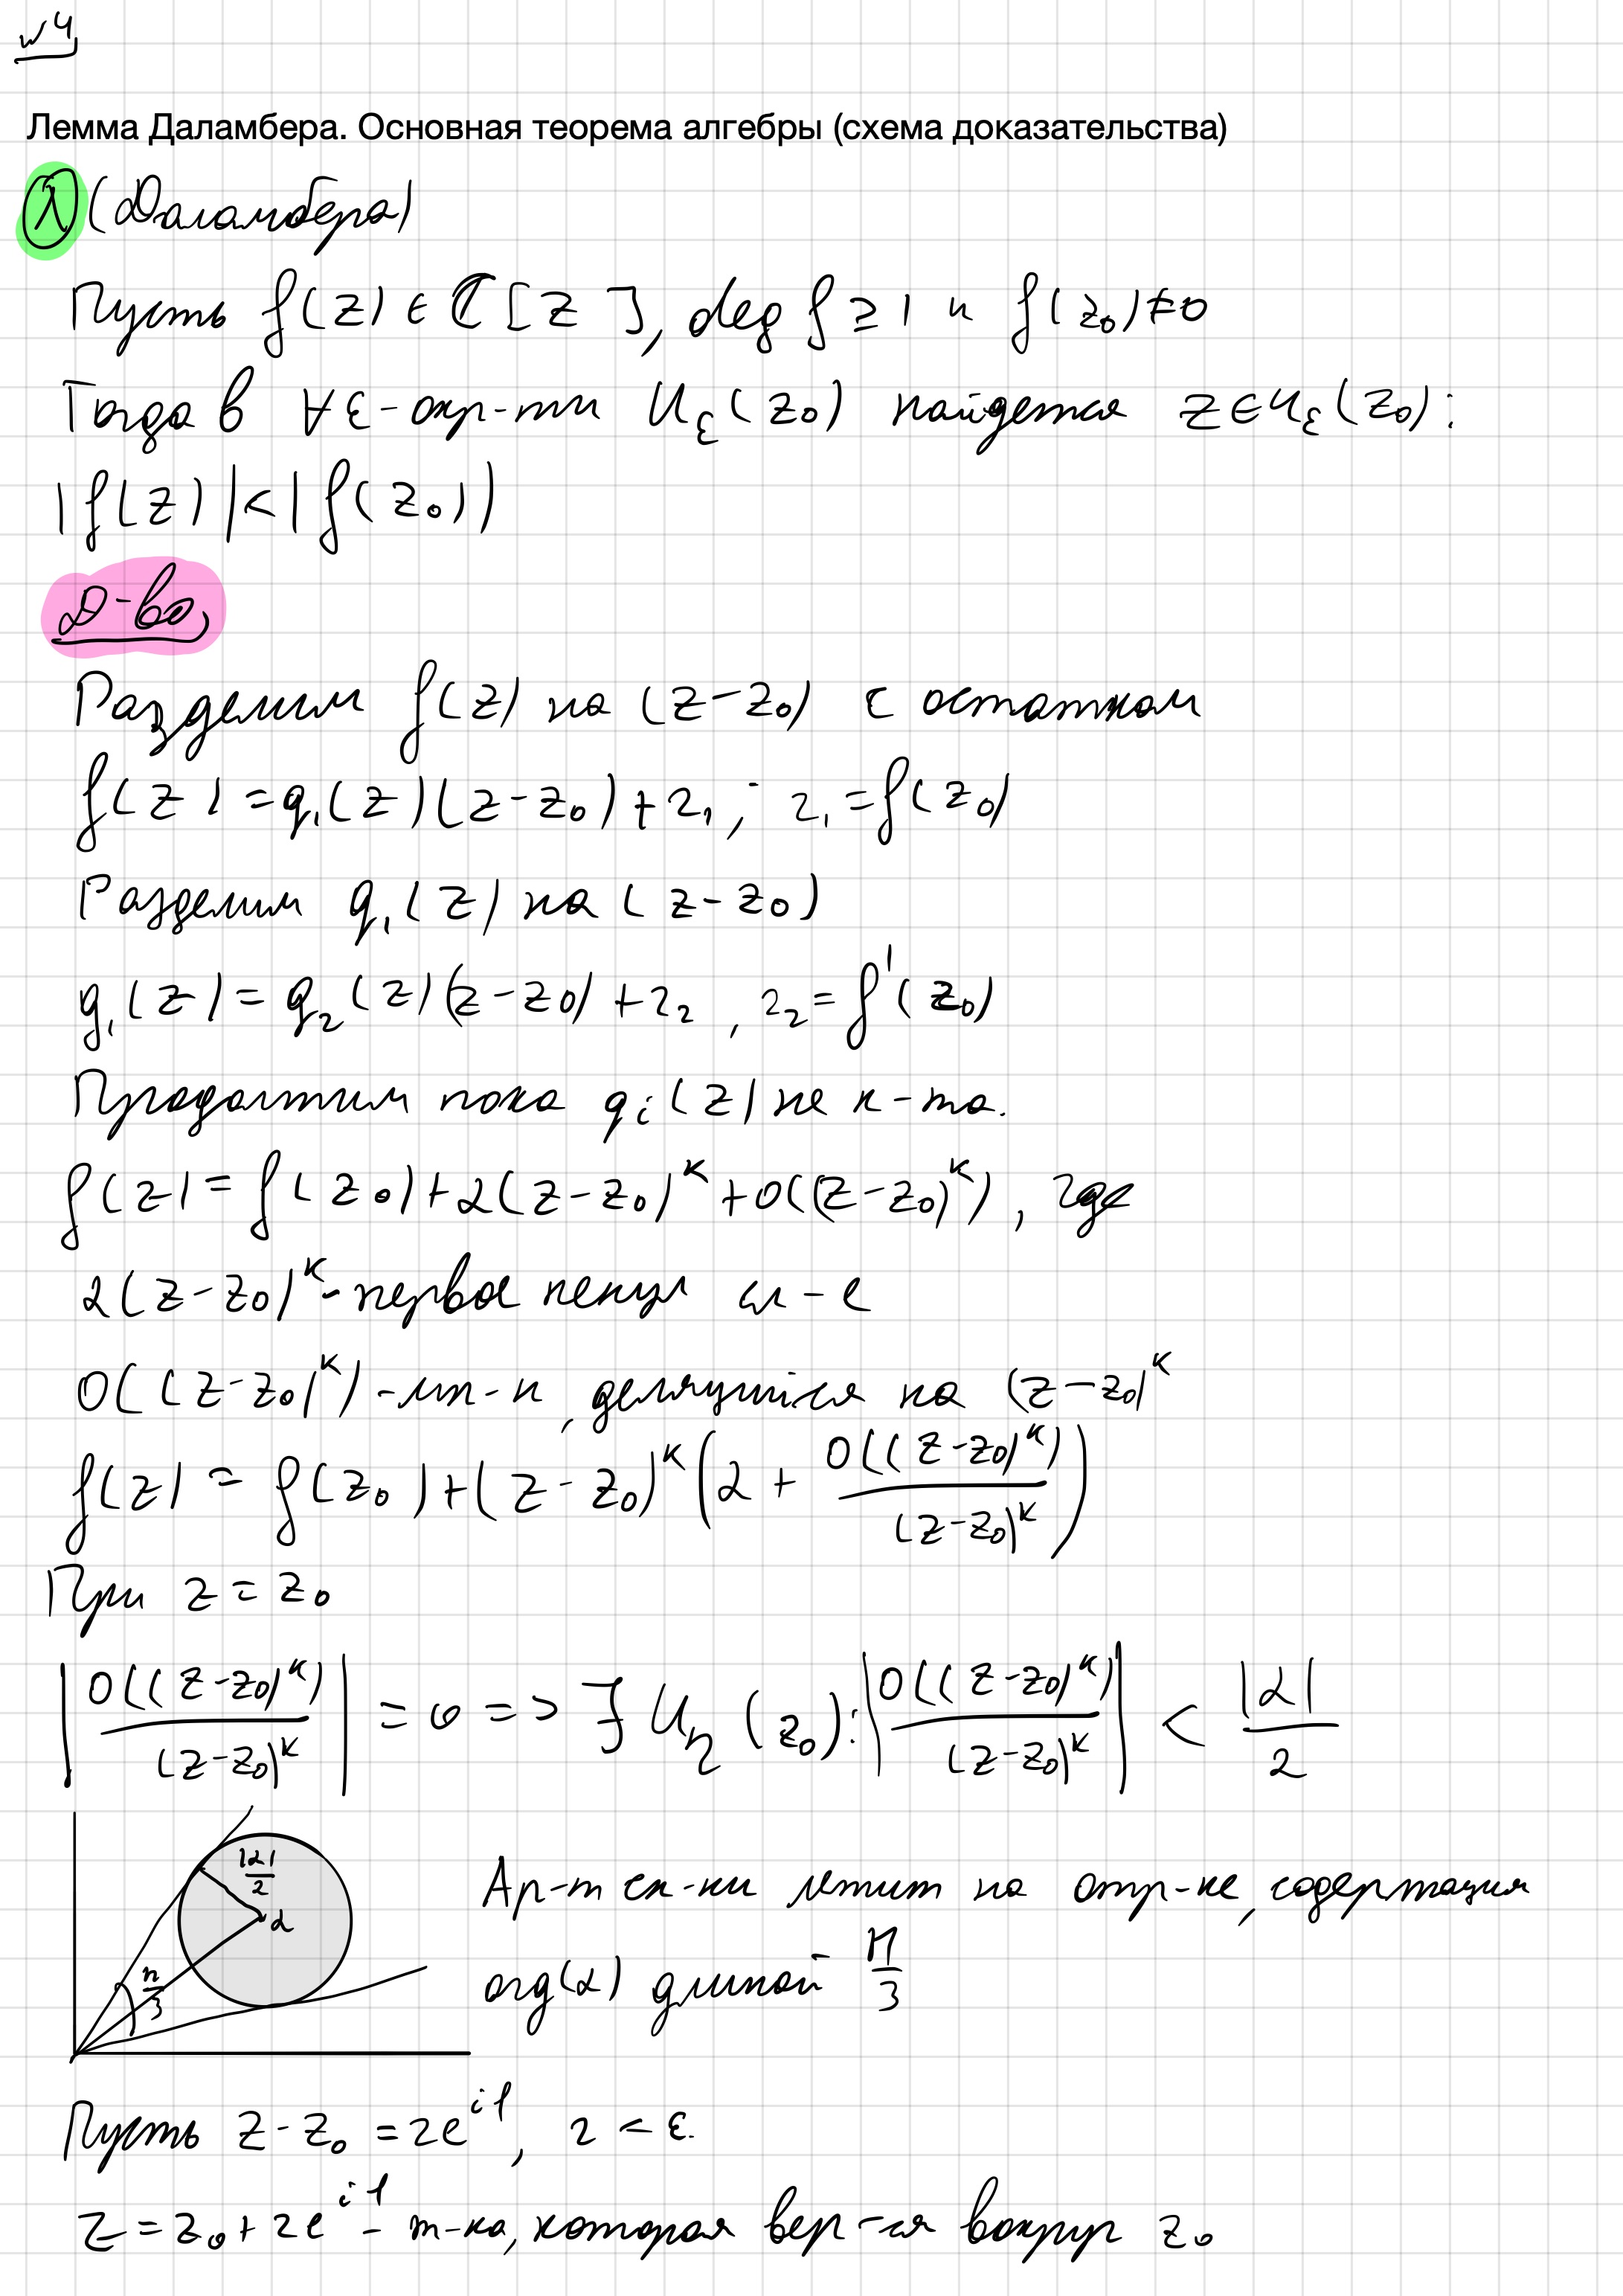 №4
Лемма Даламбера. Основная теорема алгебры (схема доказательства)
Л (Даламбера)
Пусть f(z) ∈ ℂ[z], deg f ≥ 1 и f(z₀) ≠ 0
Тогда в ∀ε-окр-ти U_ε(z₀) найдется z ∈ U_ε(z₀):
|f(z)| < |f(z₀)|
Д-во,
Разделим f(z) на (z-z₀) с остатком
f(z) = q₁(z)(z-z₀) + r₁; r₁ = f(z₀)
Разделим q₁(z) на (z-z₀)
q₁(z) = q₂(z)(z-z₀) + r₂, r₂ = f'(z₀)
Продолжим пока qᵢ(z) не к-та.
f(z) = f(z₀) + α(z-z₀)ᵏ + o((z-z₀)ᵏ), где
α(z-z₀)ᵏ - первое ненул сл-е
o((z-z₀)ᵏ) - мн-н, делящийся на (z-z₀)ᵏ
f(z) = f(z₀) + (z-z₀)ᵏ (α + o((z-z₀)ᵏ)/(z-z₀)ᵏ)
При z = z₀
|o((z-z₀)ᵏ)/(z-z₀)ᵏ| = 0 => ∃ U_η(z₀): |o((z-z₀)ᵏ)/(z-z₀)ᵏ| < |α|/2
|α|/2
α
π/3
Ар-т ск-ки лежит на отр-ке, содержащия
arg(α) длиной π/3
Пусть z-z₀ = re^{iφ}, r < ε.
z = z₀ + re^{iφ} - т-ка, которая вер-ся вокруг z₀